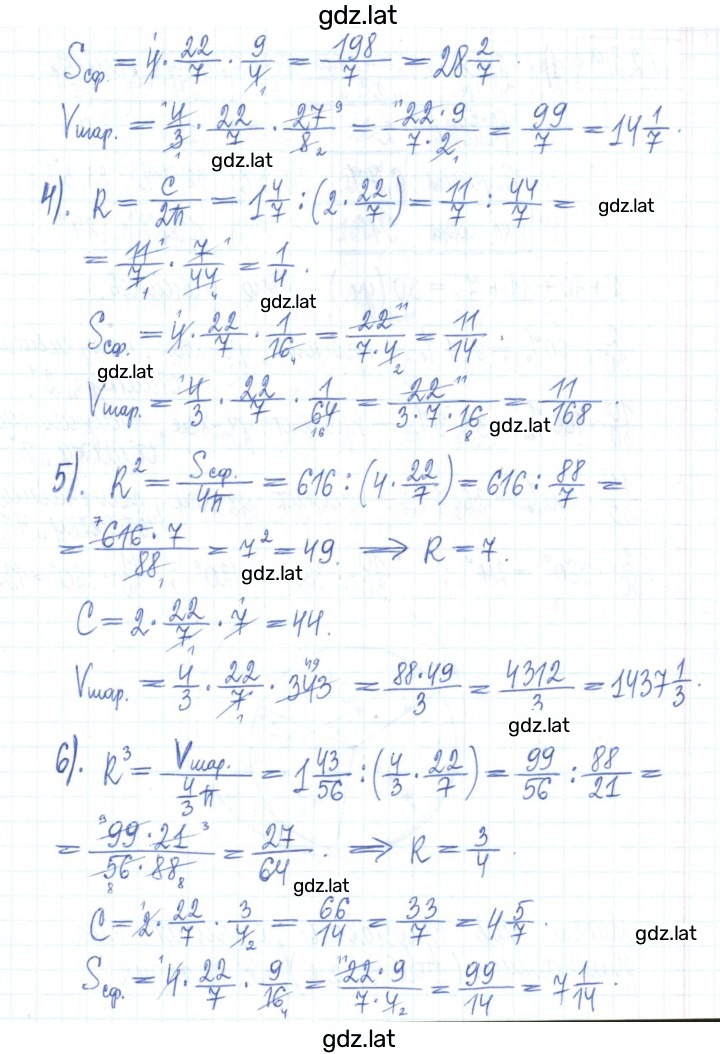 gdz.lat
Sсф. = 4 · 22/7 · 9/4 = 198/7 = 28 2/7.
Vшар. = 4/3 · 22/7 · 27/8 = 22·9/7·2 = 99/7 = 14 1/7.
gdz.lat
4). R = C/2π = 1 4/7 : (2 · 22/7) = 11/7 : 44/7 =
gdz.lat
= 11/7 · 7/44 = 1/4.
gdz.lat
Sсф. = 4 · 22/7 · 1/16 = 22/7·4 = 11/14.
gdz.lat
Vшар. = 4/3 · 22/7 · 1/64 = 22/3·7·16 = 11/168.
gdz.lat
5). R² = Sсф./4π = 616 : (4 · 22/7) = 616 : 88/7 =
= 616·7/88 = 7² = 49. ⟹ R = 7.
gdz.lat
C = 2 · 22/7 · 7 = 44.
Vшар. = 4/3 · 22/7 · 343 = 88·49/3 = 4312/3 = 1437 1/3.
gdz.lat
6). R³ = Vшар./4/3 π = 1 43/56 : (4/3 · 22/7) = 99/56 : 88/21 =
= 99·21/56·88 = 27/64. ⟹ R = 3/4.
gdz.lat
C = 2 · 22/7 · 3/4 = 66/14 = 33/7 = 4 5/7.
gdz.lat
Sсф. = 4 · 22/7 · 9/16 = 22·9/7·4 = 99/14 = 7 1/14.
gdz.lat